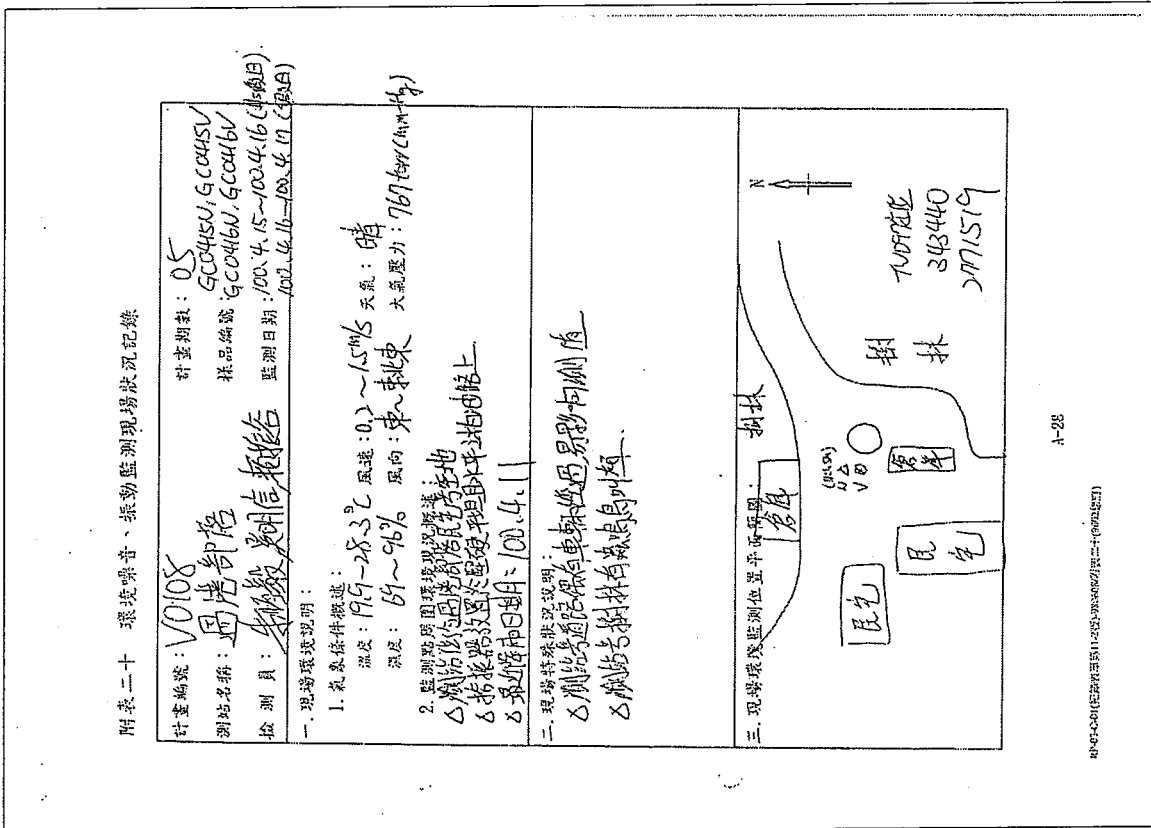 附表二十 環境噪音、振動監測現場狀況記錄
計畫編號：V0108 計畫期數：05
測站名稱：周老部落 樣品編號：GC0415N, GC0415V
GC0416N, GC0416V
檢測員： 監測日期：100.4.15~100.4.16 (非假日)
100.4.16~100.4.17 (假日)
一. 現場環境說明：
1. 氣象條件概述：
溫度：19.9~28.3℃ 風速：0.2~1.5m/s 天氣：晴
濕度：69~96% 風向：東~東北東 大氣壓力：767torr(mm-Hg)
2. 監測點周圍環境現況概述：
△測站位於周老部落民宅旁空地
△拾振器放置於堅硬平坦且水平之柏油路上
△最近降雨日期=100.4.11
二. 現場特殊狀況說明：
△測站旁道路偶有車輛經過易影响測值
△測站旁樹林有蟲鳴鳥叫頻
三. 現場環境監測位置平面簡圖：
N
樹林
倉庫
N △
V
倉庫
樹林
民宅
民宅
343440
2771519
A-28